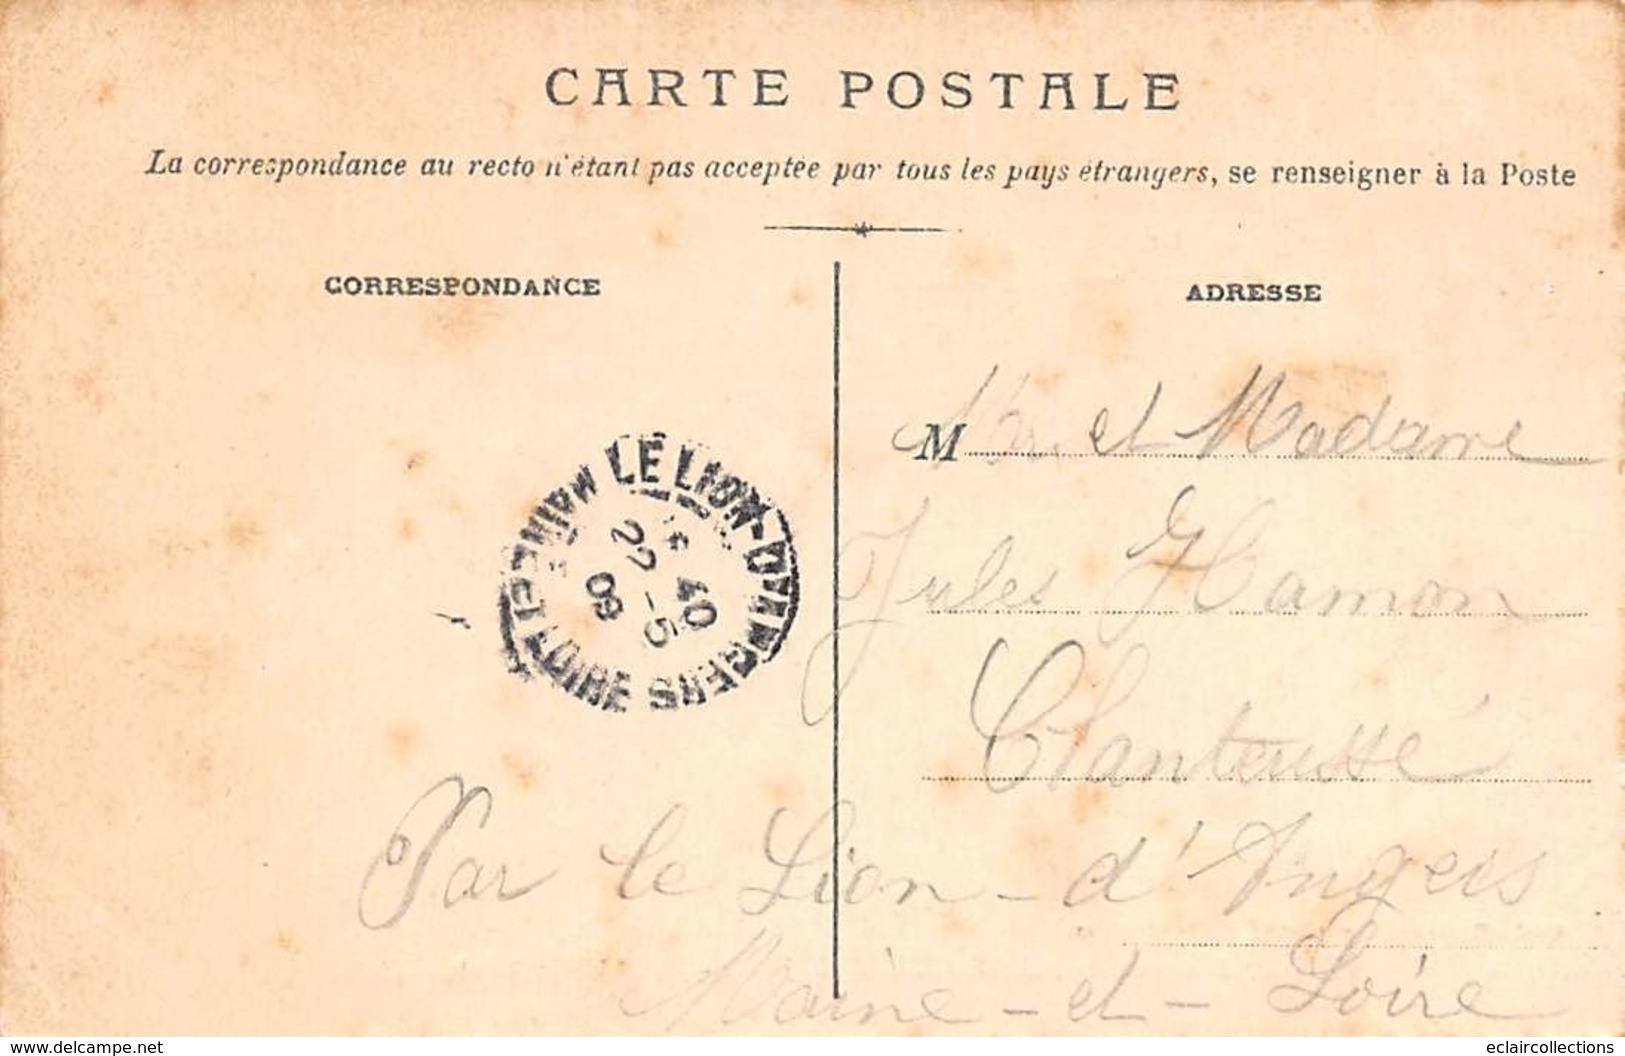 CARTE POSTALE
La correspondance au recto n'étant pas acceptée par tous les pays étrangers, se renseigner à la Poste
CORRESPONDANCE
ADRESSE
M et Madame
Jules Hamon
Chanteussé
Par le Lion-d'Angers
Maine-et-Loire
LE LION-D'ANGERS
MAINE-ET-LOIRE
40
22 -5
08
www.delcampe.net
eclaircollections